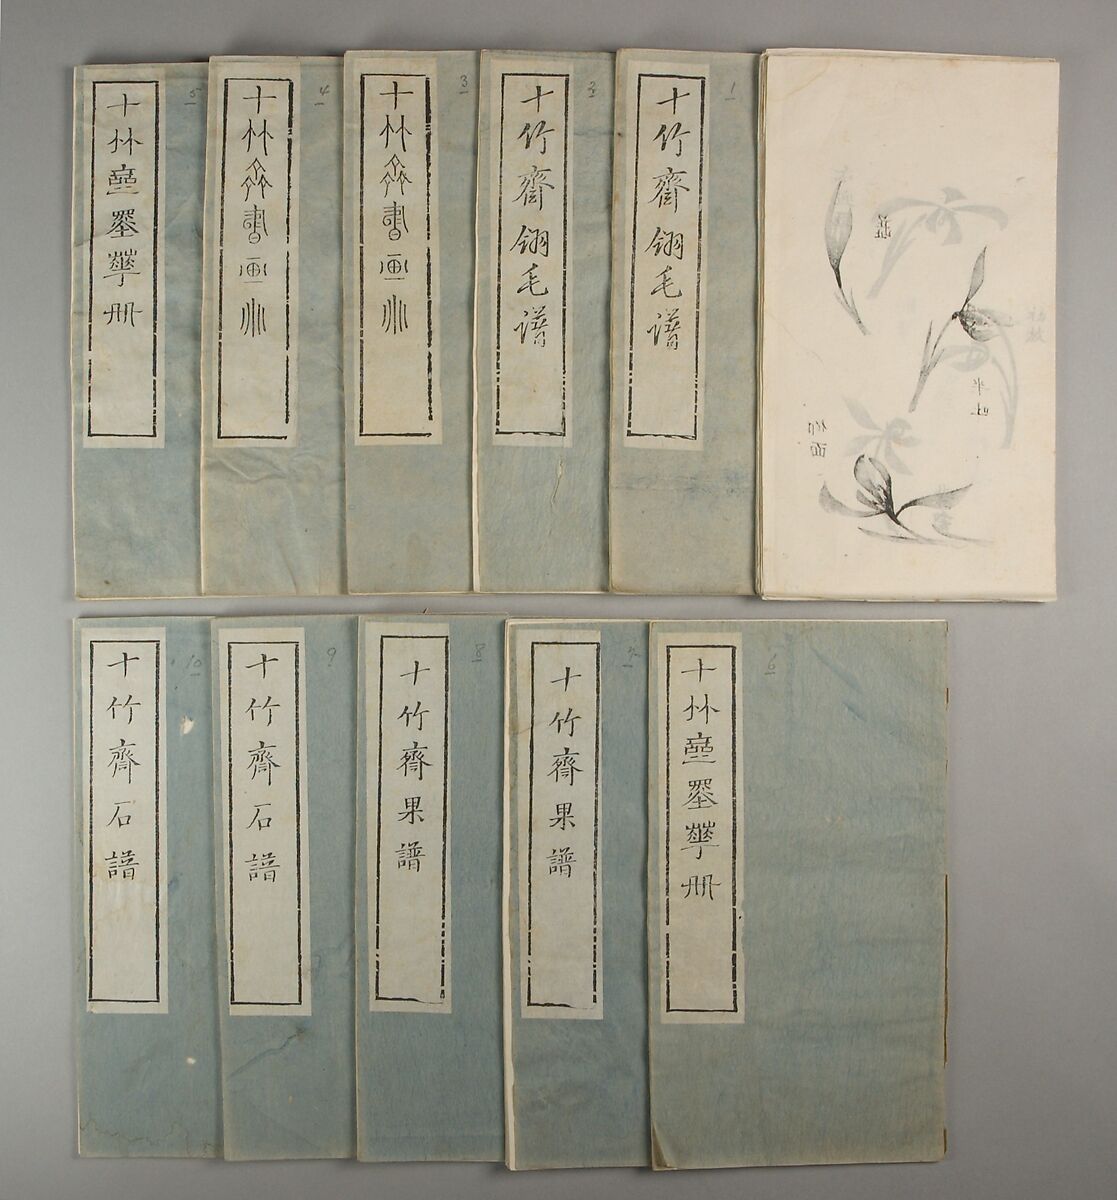 半吐
初放
十竹齋翎毛譜
1
十竹齋翎毛譜
2
十竹齋書畫冊
3
十竹齋書畫冊
4
十竹齋墨華冊
5
十竹齋墨華冊
6
十竹齋果譜
7
十竹齋果譜
8
十竹齋石譜
9
十竹齋石譜
10